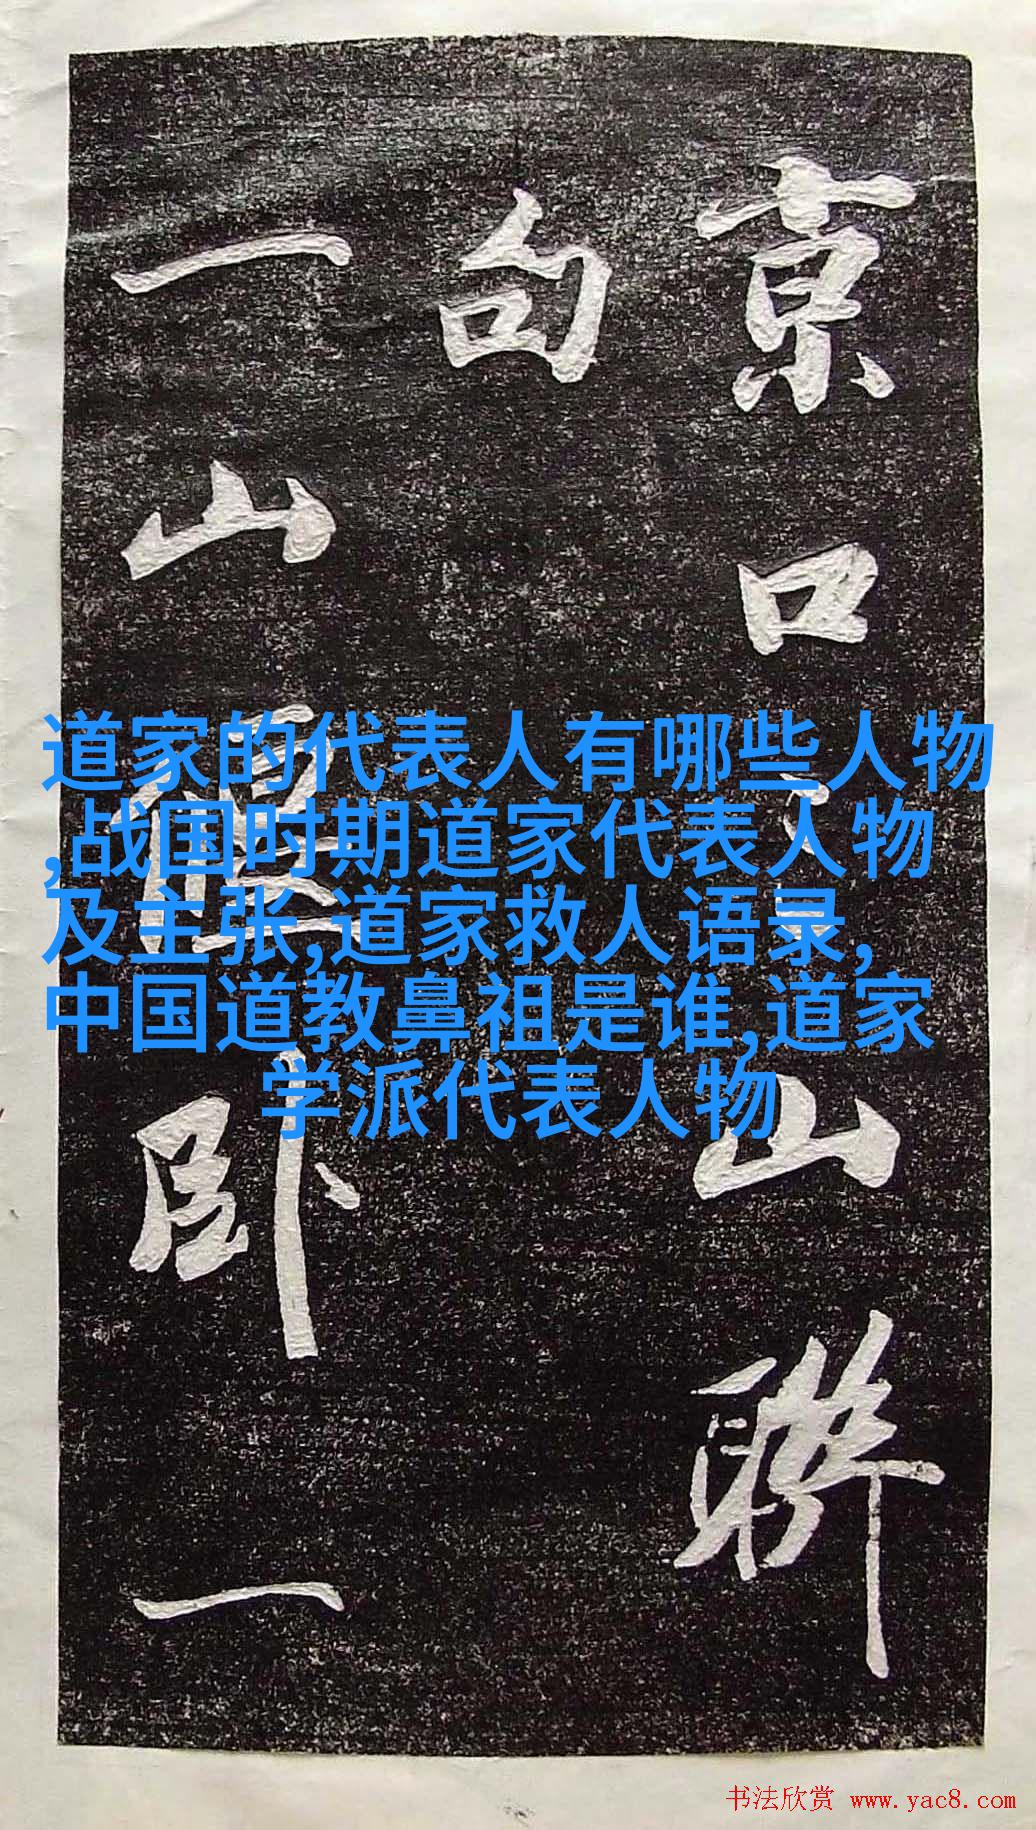 京口三山聯
句
一山偃卧一
道家的代表人有哪些人物
,战国时期道家代表人物
及主张,道家救人语录,
中国道教鼻祖是谁,道家
学派代表人物
书法欣赏 www.yac8.com